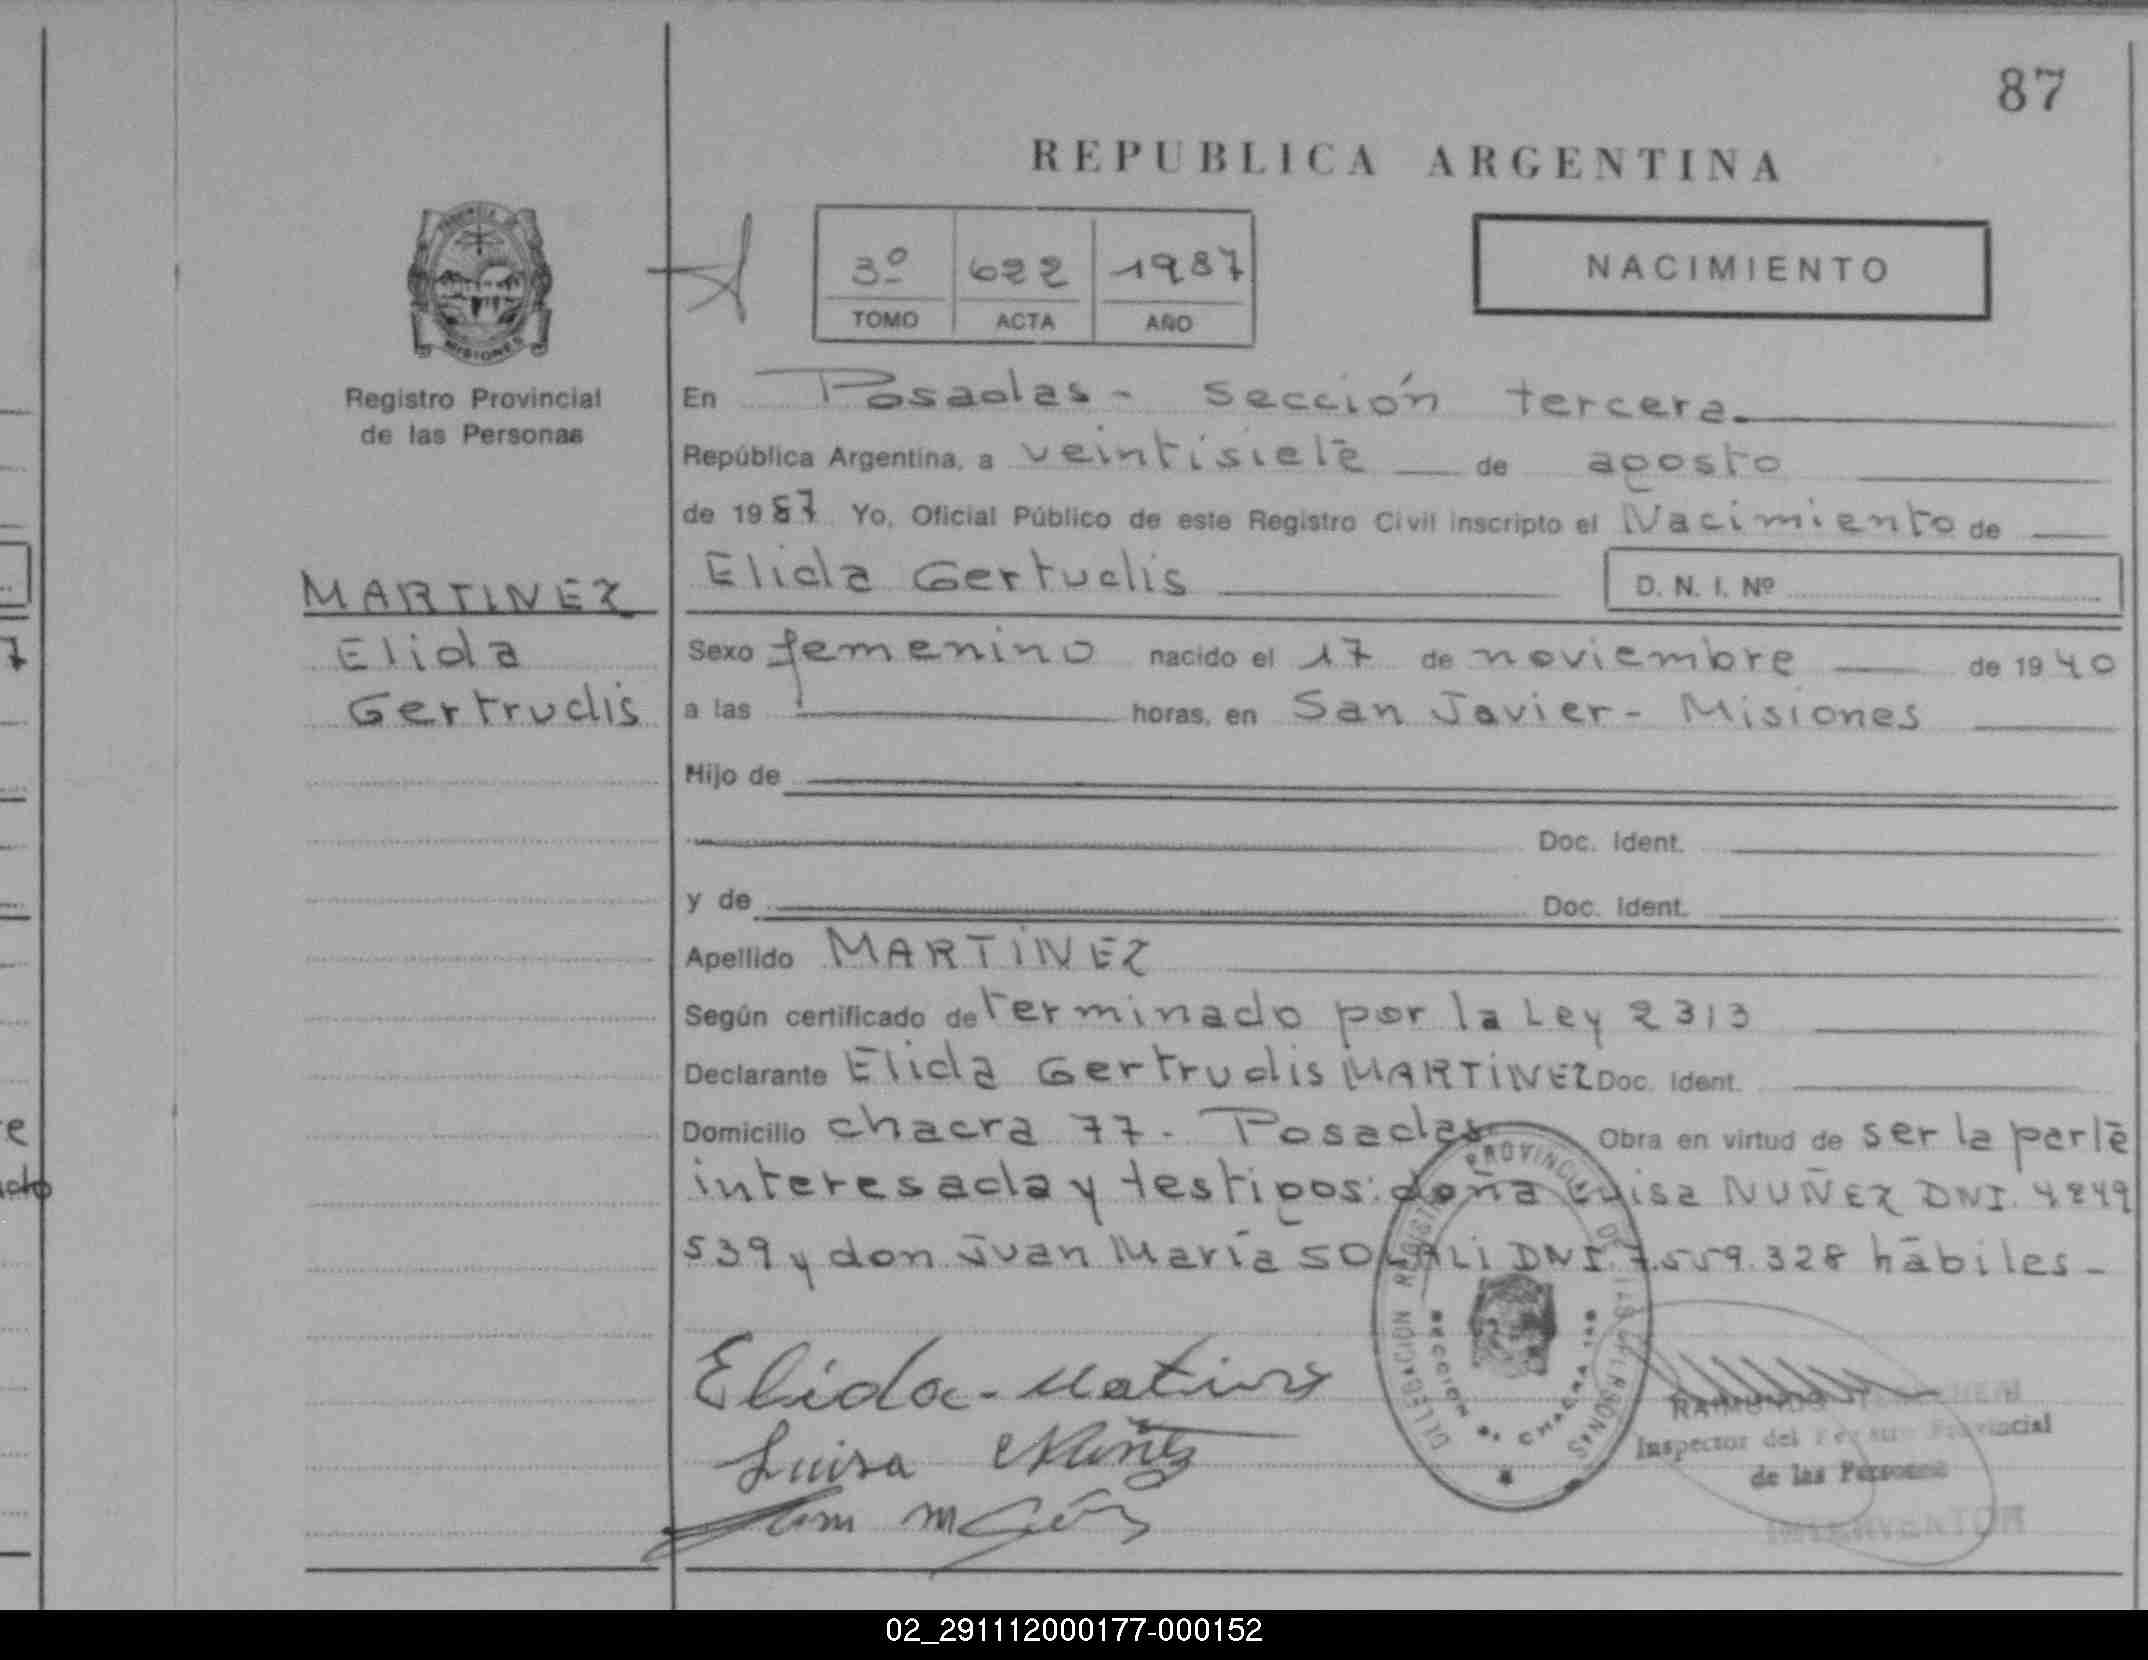 87
REPUBLICA ARGENTINA
3º 622 1987
TOMO ACTA AÑO
NACIMIENTO
MISIONES
Registro Provincial
de las Personas
En Posadas - Sección tercera.
República Argentina, a veintisiete de agosto
de 1987 Yo, Oficial Público de este Registro Civil inscripto el Nacimiento de
Elida Gertudis D. N. I. Nº
MARTINEZ
Elida
Gertrudis
Sexo femenino nacido el 17 de noviembre de 1940
a las horas, en San Javier - Misiones
Hijo de
Doc. Ident.
y de Doc. Ident.
Apellido MARTINEZ
Según certificado determinado por la Ley 2313
Declarante Elida Gertrudis MARTINEZ Doc. Ident.
Domicilio chacra 77 - Posadas Obra en virtud de ser la parte
interesada y testigos: doña Luisa NUÑEZ DNI. 4249
539 y don Juan María DNI. 7.559.328 hábiles -
DELEGACION REGISTRO PROVINCIAL DE LAS PERSONAS
SECCION 3ª CHACRA
Elida
Luisa Nuñez
RAIMUNDO
Inspector del Registro Provincial
de las Personas
INTERVENTOR
02_291112000177-000152